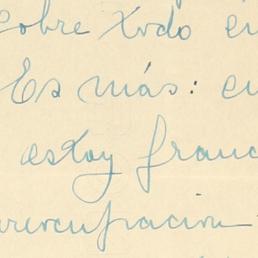 sobre todo en
Es más: en
estoy franc
preocupacion